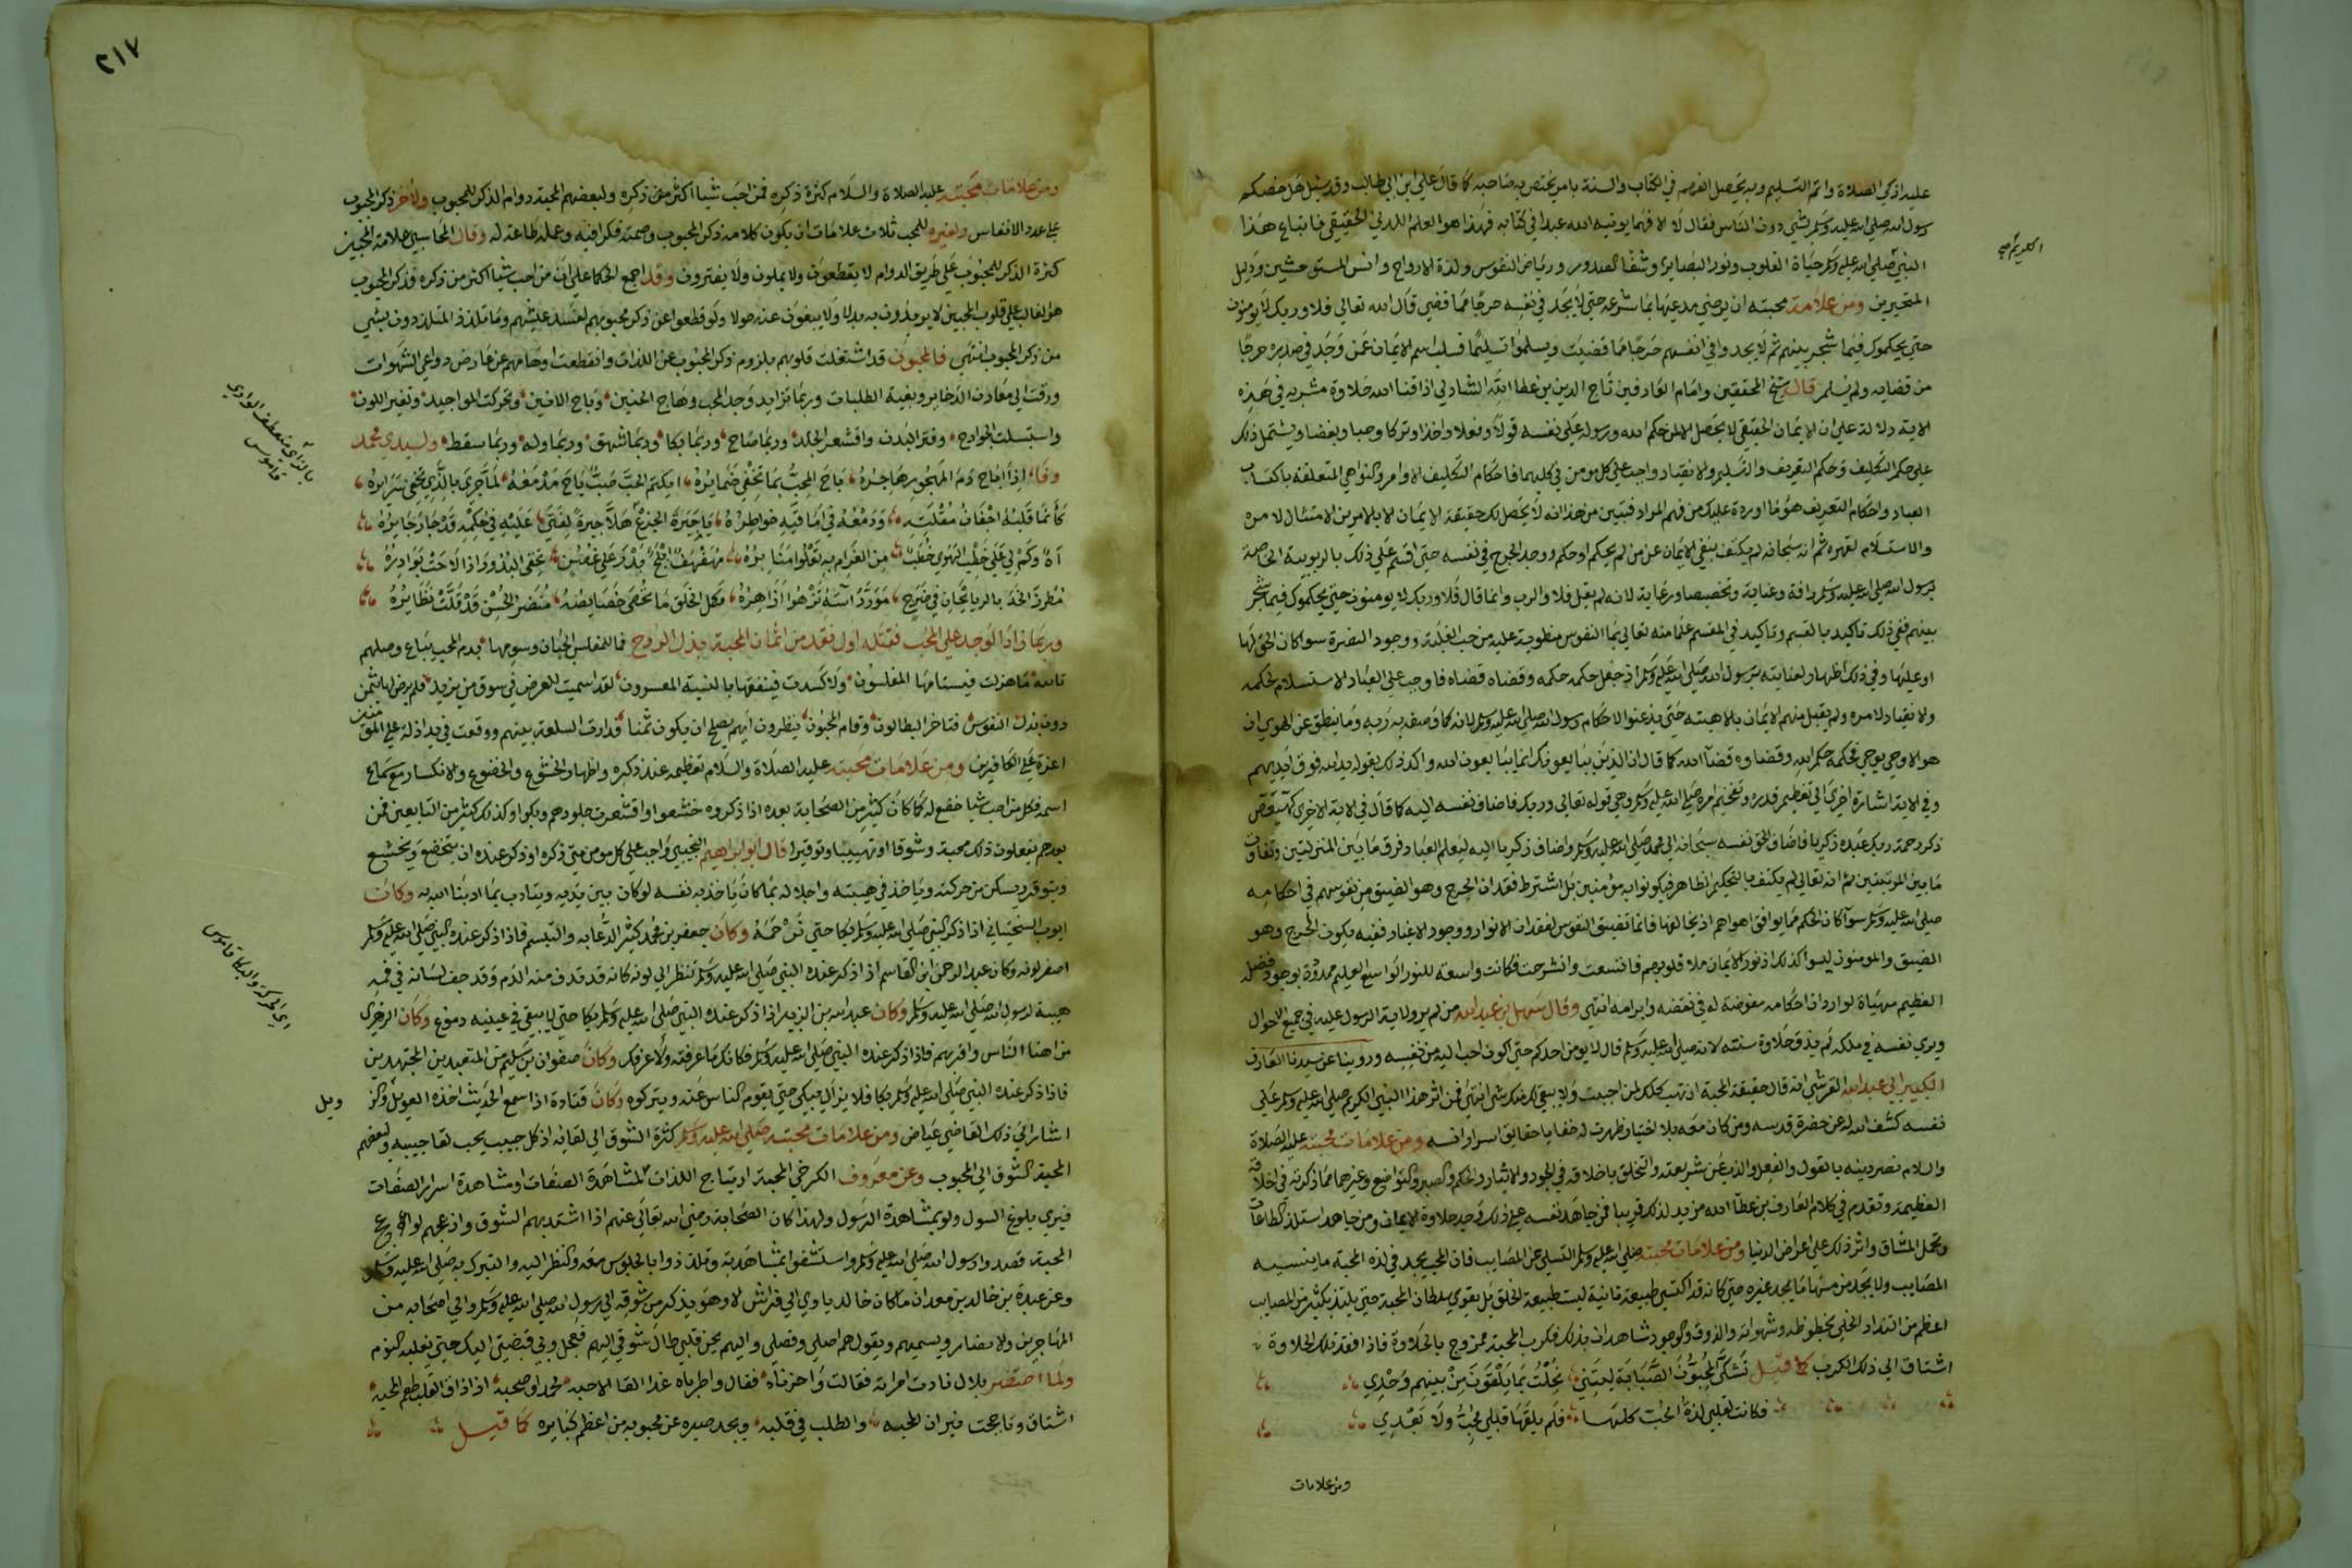 عليه ازكي الصلاة واتم التسليم وبه يحصل الفهم في الكتاب والسنة بامر يختص به صاحبه كما قال علي ابن ابي طالب وقد سئل هل خصكم
رسول الله صلي الله عليه وسلم بشي دون الناس فقال لا الا فهما يوتيه الله عبدا في كتابه فهذا هو العلم اللدني الحقيقي فاتباع هذا
النبي صلي الله عليه وسلم حياة القلوب ونور البصاير وشفا الصدور ورياض النفوس ولذة الارواح وانس المستوحشين ودليل
المتحيرين ومن علامة محبته ان يرضي مدعيها بما شرعه حتي لا يجد في نفسه حرجا مما قضي قال الله تعالي فلا وربك لا يومنون
حتي يحكموك فيما شجر بينهم ثم لا يجدوا في انفسهم حرجا مما قضيت ويسلموا تسليما فسلب اسم الايمان عمن وجد في صدره حرجا
من قضايه ولم يسلم قال شيخ المحققين وامام العارفين تاج الدين بن عطا الله الشاذلي اذاقنا الله حلاوة مشربه في هذه
الاية دلالة علي ان الايمان الحقيقي لا يحصل الا لمن حكم الله ورسوله علي نفسه قولا وفعلا واخذا وتركا وحبا وبغضا ويشتمل ذلك
علي حكم التكليف وحكم التعريف والتسليم والانقياد واجب علي كل مومن في كليهما فاحكام التكليف الاوامر والنواهي المتعلقة باكتساب
العباد واحكام التعريف هو ما اورده عليك من فهم المراد فتبين من هذا انه لا يحصل لك حقيقة الايمان الا بالامرين الامتثال لامره
والاستسلام لقهره ثم انه سبحانه لم يكتف بنفي الايمان عن من لم يحكم او حكم ووجد الحرج في نفسه حتي اقسم علي ذلك بالربوبية الخاصة
برسول الله صلي الله عليه وسلم رافة وعناية وتخصيصا ورعاية لانه لم يقل فلا والرب وانما قال فلا وربك لا يومنون حتي يحكموك فيما شجر
بينهم ففي ذلك تاكيد بالقسم وتاكيد في المقسم علما منه تعالي بما النفوس منطوية عليه من حب الغلبة ووجود النصرة سوا كان الحق لها
او عليها وفي ذلك اظهار لعنايته برسول الله صلي الله عليه وسلم اذ جعل حكمه حكمه وقضاه قضاه فاوجب علي العباد الاستسلام لحكمه
والانقياد لامره ولم يقبل منهم الايمان بالاهيته حتي يذعنوا لاحكام رسول الله صلي الله عليه وسلم لانه كما وصفه به ربه وما ينطق عن الهوي ان
هو الا وحي يوحي فحكمه حكم الله وقضاوه قضا الله كما قال ان الذين يبايعونك انما يبايعون الله واكد ذلك بقوله يد الله فوق ايديهم
وفي الاية اشارة اخري الي تعظيم قدره وتفخيم امره صلي الله عليه وسلم وهي قوله تعالي وربك فاضاف نفسه اليه كما قال في الاية الاخري كهيعص
ذكر رحمة ربك عبده زكريا فاضاف الحق نفسه سبحانه الي محمد صلي الله عليه وسلم واضاف زكريا اليه ليعلم العباد فرق ما بين المنزلتين وتفاوت
ما بين المرتبتين ثم انه تعالي لم يكتف بالتحكيم الظاهر فيكونوا به مؤمنين بل اشترط فقدان الحرج وهو الضيق من نفوسهم في احكامه
صلي الله عليه وسلم سوا كان الحكم مما يوافق اهواهم او يخالفها فانما تضيق النفوس لفقدان الانوار ووجود الاغيار ففيه يكون الحرج وهو
الضيق والمومنون ليسوا كذلك اذ نور الايمان ملا قلوبهم فاتسعت وانشرحت فكانت واسعة للنور الواسع العليم ممدودة بوجود فضله
العظيم مهياة لواردات احكامه مفوضة له في نقضه وابرامه انتهي وقال سهل بن عبد الله من لم ير ولاية الرسول عليه في جميع الاحوال
ويري نفسه في ملكه لم يذق حلاوة سنته لانه صلي الله عليه وسلم قال لا يومن احدكم حتي اكون احب اليه من نفسه وروينا عن سيدنا العارف
الكبير ابي عبد الله القرشي انه قال حقيقة المحبة ان تهب كلك لمن احببت ولا يبقي لك منك شي انتهي فمن اثر هذا النبي الكريم صلي الله عليه وسلم علي
نفسه كشف الله له عن حضرة قدسه ومن كان معه بلا اختيار ظهرت له خفايا حقايق اسرار انسه ومن علامات محبته عليه الصلاة
والسلام نصر دينه بالقول والفعل والذب عن شريعته والتخلق باخلاقه في الجود والايثار والحلم والصبر والتواضع وغيرهما مما ذكرته في اخلاقه
العظيمة وتقدم في كلام العارف بن عطا الله مزيد لذلك قريبا فمن جاهد نفسه علي ذلك وجد حلاوة الايمان ومن جاهد استلذ الطاعات
وتحمل المشاق واثر ذلك علي اعراض الدنيا ومن علامات محبته صلي الله عليه وسلم التسلي عن المصايب فان المحب يجد في لذة المحبة ما ينسيه
المصايب ولا يجد من مسها ما يجد غيره حتي كانه قد اكتسي طبيعة ثانية ليست طبيعة الخلق بل يقوي سلطان المحبة حتي يلتذ بكثير من المصايب
اعظم من التذاذ الخلي بحظوظه وشهواته والذوق والوجود شاهدان بذلك فكرب المحبة ممزوج بالحلاوة فاذا فقد تلك الحلاوة
اشتاق الي ذلك الكرب كما قيل تشكي المحبون الصبابة ليتني تحملت بما يلقون من بينهم وحدي
فكانت لقلبي لذة الحب كلها فلم يلقها قبلي محب ولا بعدي
ومن علامات
٢١٧
ومن علامات محبته عليه الصلاة والسلام كثرة ذكره فمن احب شيا اكثر من ذكره ولبعضهم المحبة دوام الذكر للمحبوب ولاخر ذكر المحبوب
علي عدد الانفاس ولغيره للمحب ثلاث علامات ان يكون كلامه ذكر المحبوب وصمته فكرا فيه وعمله طاعة له وقال المحاسبي علامة المحبين
كثرة الذكر للمحبوب علي طريق الدوام لا يقطعون ولا يملون ولا يفترون وقد اجمع الحكما علي ان من احب شيا اكثر من ذكره فذكر المحبوب
هو الغالب علي قلوب المحبين لا يريدون به بدلا ولا يبغون عنه حولا ولو قطعوا عن ذكر محبوبهم لفسد عيشهم وما تلذذ المتلذذون بشي
من ذكر المحبوب انتهي فالمحبون قد اشتغلت قلوبهم بلزوم ذكر المحبوب عن اللذات وانقطعت اوهامهم عن عارض دواعي الشهوات
ورقت الي معادن الذخاير وبغية الطلبات وربما تزايد وجد المحب وهاج الحنين وباح الانين وتحركت المواجيد وتغير اللون
واستسلت الجوارح وفتر البدن واقشعر الجلد وربما صاح وربما بكا وربما شهق وربما وله وربما سقط ولسيدي محمد
وفا اذا اباح دم المهجور هاجره باح المحب بما تخفي ضمايره ايكتم الحب صب باح مدمعه لما جري بالذي تخفي سرايره
كانما قلبه اجفان مقلته ودمعه في اماقيه خواطره يا جيرة الجزع هلا جيرة لفتي عليه في حكمه قد جار جايره
اه وكم لي علي خطب الهوي خطب من الغرام به تعلوا منابره مهفهف ابلج بدر علي غصن تخفي البدور اذا لاحت بوادره
مطرز الخد بالريحان في ضرج مورد اسه تزهوا ازاهره فكل الخلق ما تحصي خصايصه منضر الحسن قد قلت نظايره
وربما زاد الوجد علي المحب فقتله اول نقد من اثمان المحبة بذل الروح فما للمفلس الجبان وسومها بدم المحب يباع وصلهم
تالله ما هزلت فيستامها المفلسون ولا كسدت فينفقها بالنسية المعسرون لقد اسيمت للعرض في سوق من يزيد فلم يرض لها بثمن
دون بذل النفوس فتاخر البطالون وقام المحبون ينظرون ايهم يصلح ان يكون ثمنا فدارت السلعة بينهم ووقعت في يد اذلة علي المومنين
اعزة علي الكافرين ومن علامات محبته عليه الصلاة والسلام تعظيمه عند ذكره واظهار الخشوع والخضوع والانكسار مع سماع
اسمه فكل من احب شيا خضع له كما كان كثير من الصحابة بعده اذا ذكروه خشعوا واقشعرت جلودهم وبكوا وكذلك كثير من التابعين فمن
بعدهم يفعلون ذلك محبة وشوقا او تهيبا وتوقيرا قال ابو ابراهيم التجيبي واجب علي كل مومن متي ذكره او ذكر عنده ان يخضع ويخشع
ويتوقر ويسكن من حركته وياخذ في هيبته واجلاله بما كان ياخذ به نفسه لو كان بين يديه ويتادب بما ادبنا الله به وكان
ايوب السختياني اذا ذكر النبي صلي الله عليه وسلم بكا حتي نرحمه وكان جعفر بن محمد كثير الدعابة والتبسم فاذا ذكر عنده النبي صلي الله عليه وسلم
اصفر لونه وكان عبد الرحمن ابن القاسم اذا ذكر عنده النبي صلي الله عليه وسلم تنظر الي لونه كانه قد نزف منه الدم وقد جف لسانه في فمه
هيبة لرسول الله صلي الله عليه وسلم وكان عبد الله بن الزبير اذا ذكر عنده النبي صلي الله عليه وسلم بكا حتي لا يبقي في عينيه دموع وكان الزهري
من اهنا الناس واقربهم فاذا ذكر عنده النبي صلي الله عليه وسلم فكانك ما عرفته ولا عرفك وكان صفوان بن سليم من المتعبدين المجتهدين
فاذا ذكر عنده النبي صلي الله عليه وسلم بكا فلا يزال يبكي حتي يقوم الناس عنه ويتركوه وكان قتادة اذا سمع الحديث اخذه العويل والز
ويل
اشار الي ذلك القاضي عياض ومن علامات محبته صلي الله عليه وسلم كثرة الشوق الي لقايه اذ كل حبيب يحب لقا حبيبه ولبعضهم
المحبة الشوق الي المحبوب وعن معروف الكرخي المحبة ارتياح الذات لمشاهدة الصفات او مشاهدة اسرار الصفات
فيري بلوغ السول ولو بمشاهدة الرسول ولهذا كان الصحابة رضي الله تعالي عنهم اذا اشتد بهم الشوق وازعجهم لواعج
المحبة قصدوا رسول الله صلي الله عليه وسلم واستشفوا بمشاهدته وتلذذوا بالجلوس معه والنظر اليه والتبرك به صلي الله عليه وسلم
وعن عبدة بن خالد بن معدان ما كان خالد ياوي الي فراش الا وهو يذكر من شوقه الي رسول الله صلي الله عليه وسلم والي اصحابه من
المهاجرين والانصار ويسميهم ويقول هم اصلي وفصلي واليهم يحن قلبي طال شوقي اليهم فعجل ربي قبضي اليك حتي يغلبه النوم
ولما احتضر بلال نادت امراته فقالت واحزناه فقال واطرباه غدا القا الاحبه محمدا وصحبه اذا ذاق القلب طعم المحبه
اشتاق وتاججت نيران المحبه والطلب في قلبه ويجد صبره عن محبوبه من اعظم كبايره كما قيل